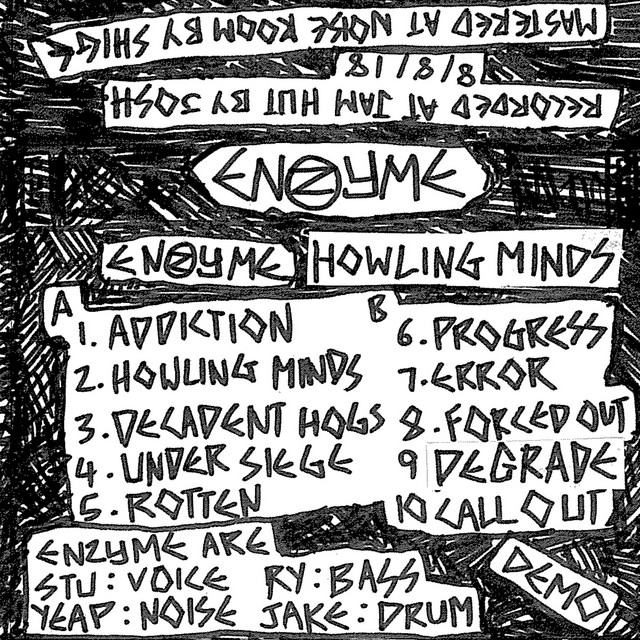 MASTERED AT NOISE ROOM BY SHIGE
8/8/18
RECORDED AT JAM HUT BY JOSH
ENZYME
ENZYME HOWLING MINDS
A
1. ADDICTION
2. HOWLING MINDS
3. DECADENT HOGS
4. UNDER SIEGE
5. ROTTEN
B
6. PROGRESS
7. ERROR
8. FORCED OUT
9 DEGRADE
10 CALL OUT
ENZYME ARE
STU: VOICE RY: BASS
YEAP: NOISE JAKE: DRUM
DEMO